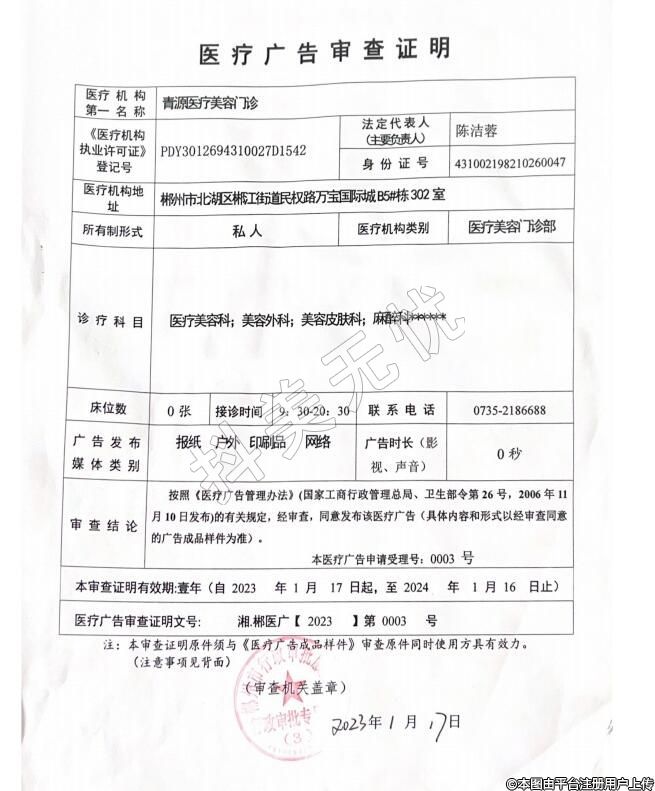 医疗广告审查证明
医疗机构
第一名称
青源医疗美容门诊
《医疗机构
执业许可证》
登记号
PDY3012694310027D1542
法定代表人
(主要负责人)
陈洁蓉
身份证号
431002198210260047
医疗机构地
址
郴州市北湖区郴江街道民权路万宝国际城B5#栋302室
所有制形式
私人
医疗机构类别
医疗美容门诊部
诊疗科目
医疗美容科；美容外科；美容皮肤科；麻醉科******
床位数
0张
接诊时间
9：30-20：30
联系电话
0735-2186688
广告发布
媒体类别
报纸 户外 印刷品 网络
广告时长（影
视、声音）
0秒
审查结论
按照《医疗广告管理办法》(国家工商行政管理总局、卫生部令第26号，2006年11
月10日发布)的有关规定，经审查，同意发布该医疗广告（具体内容和形式以经审查同意
的广告成品样件为准）。
本医疗广告申请受理号：0003 号
本审查证明有效期:壹年（自 2023 年 1 月 17 日起，至 2024 年 1 月 16 日止）
医疗广告审查证明文号： 湘.郴医广【 2023 】第 0003 号
注：本审查证明原件须与《医疗广告成品样件》审查原件同时使用方具有效力。
（注意事项见背面）
（审查机关盖章）
2023年1月17日
抖美无忧
©本图由平台注册用户上传